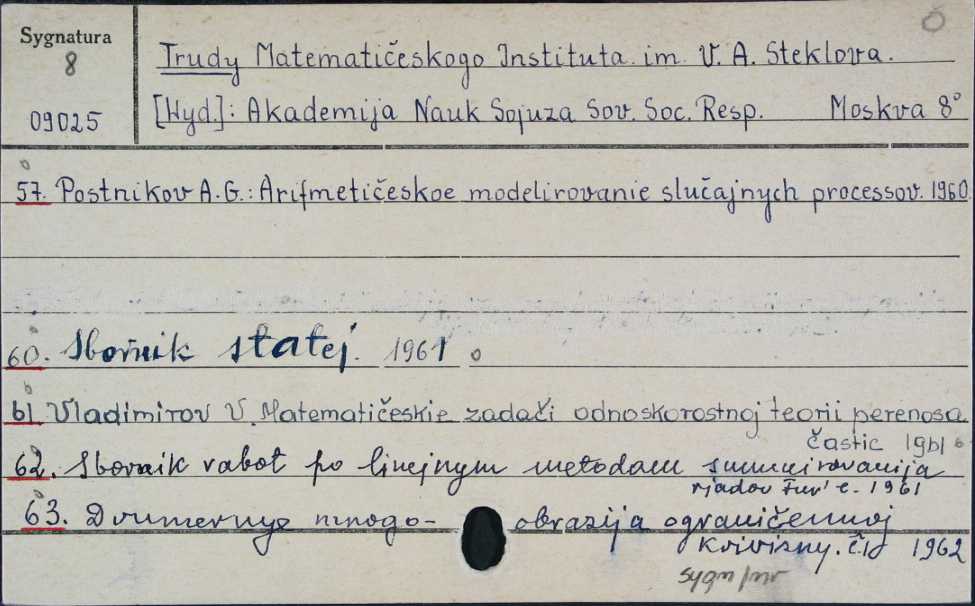 Sygnatura
8
09025
Trudy Matematičeskogo Instituta im. V. A. Steklova.
[Wyd]: Akademija Nauk Sojuza Sov. Soc. Resp. Moskva 8°
57. Postnikov A.G.: Arifmetičeskoe modelirovanie slučajnych processov. 1960
60. Sbornik statej. 1961
61 Vladimirov V. Matematičeskie zadači odnoskorostnoj teorii perenosa
častic 1961
62. Sbornik rabot po linejnym metodam summirovanija
rjadov Fur'e. 1961
63. Dvumernye mnogo- obrazija ograničennoj
krivizny. č.1 1962
sygn/nr